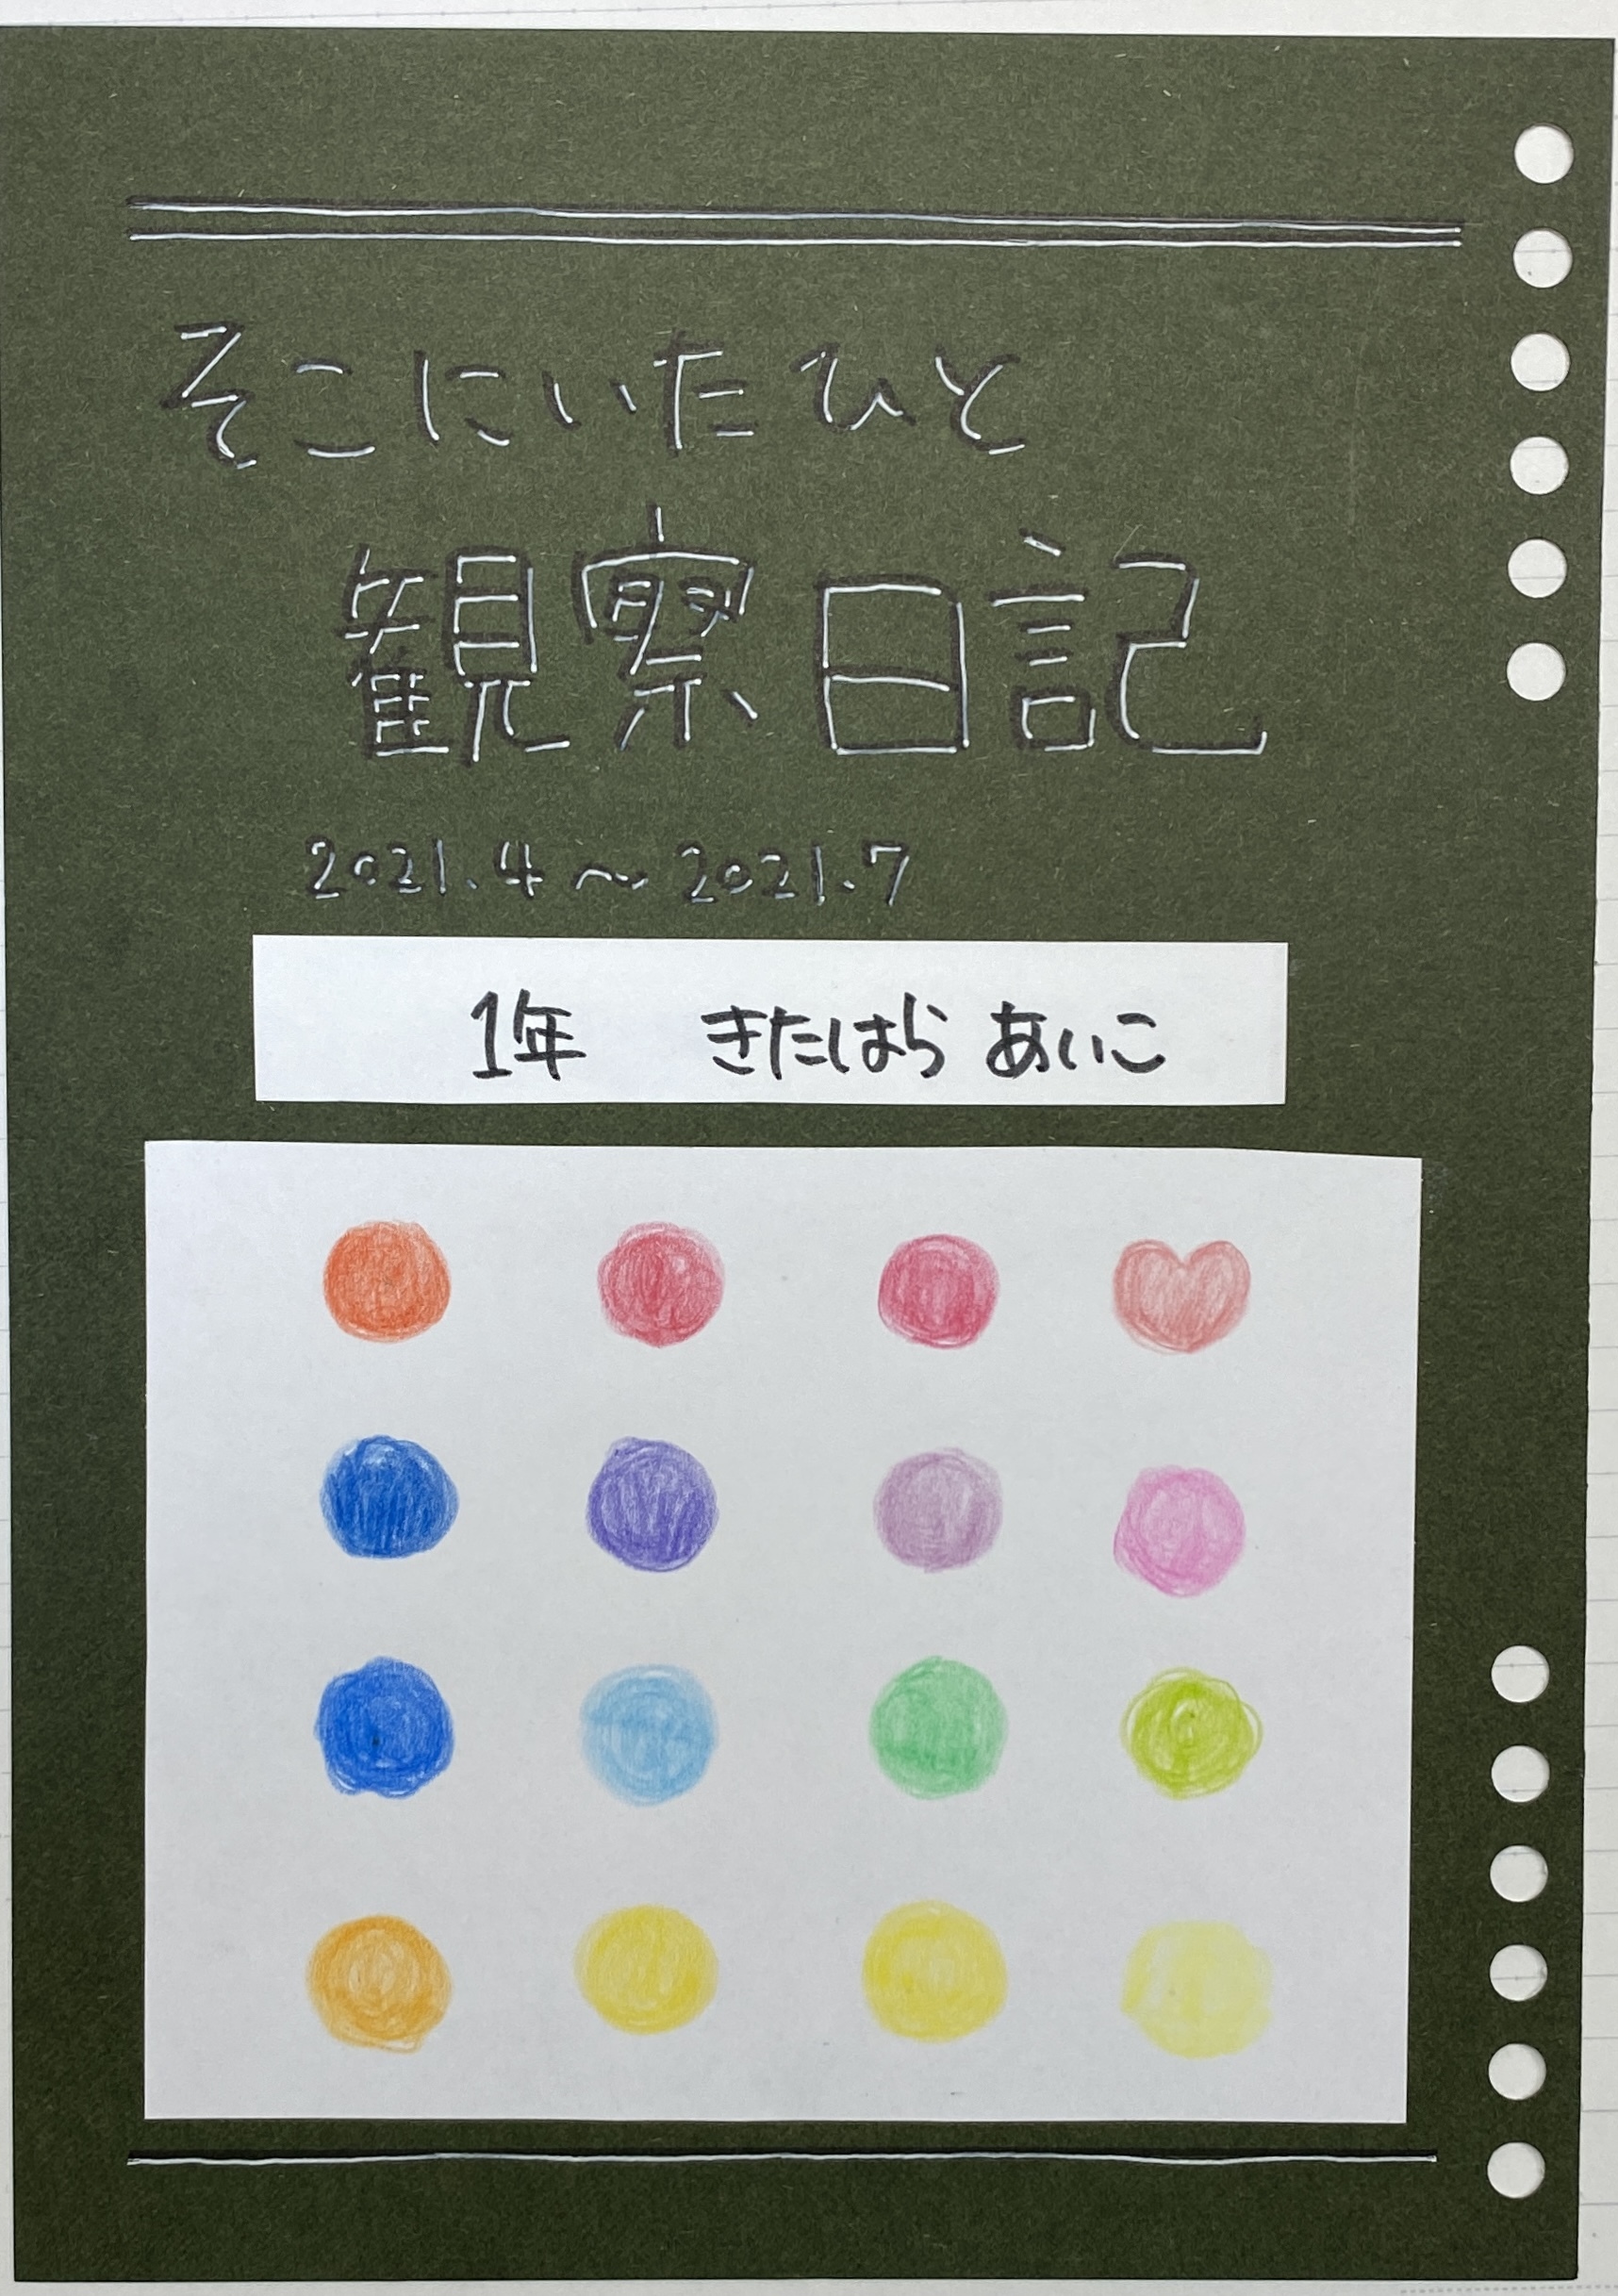 そこにいたひと
観察日記
2021.4〜2021.7
1年 きたはら あいこ